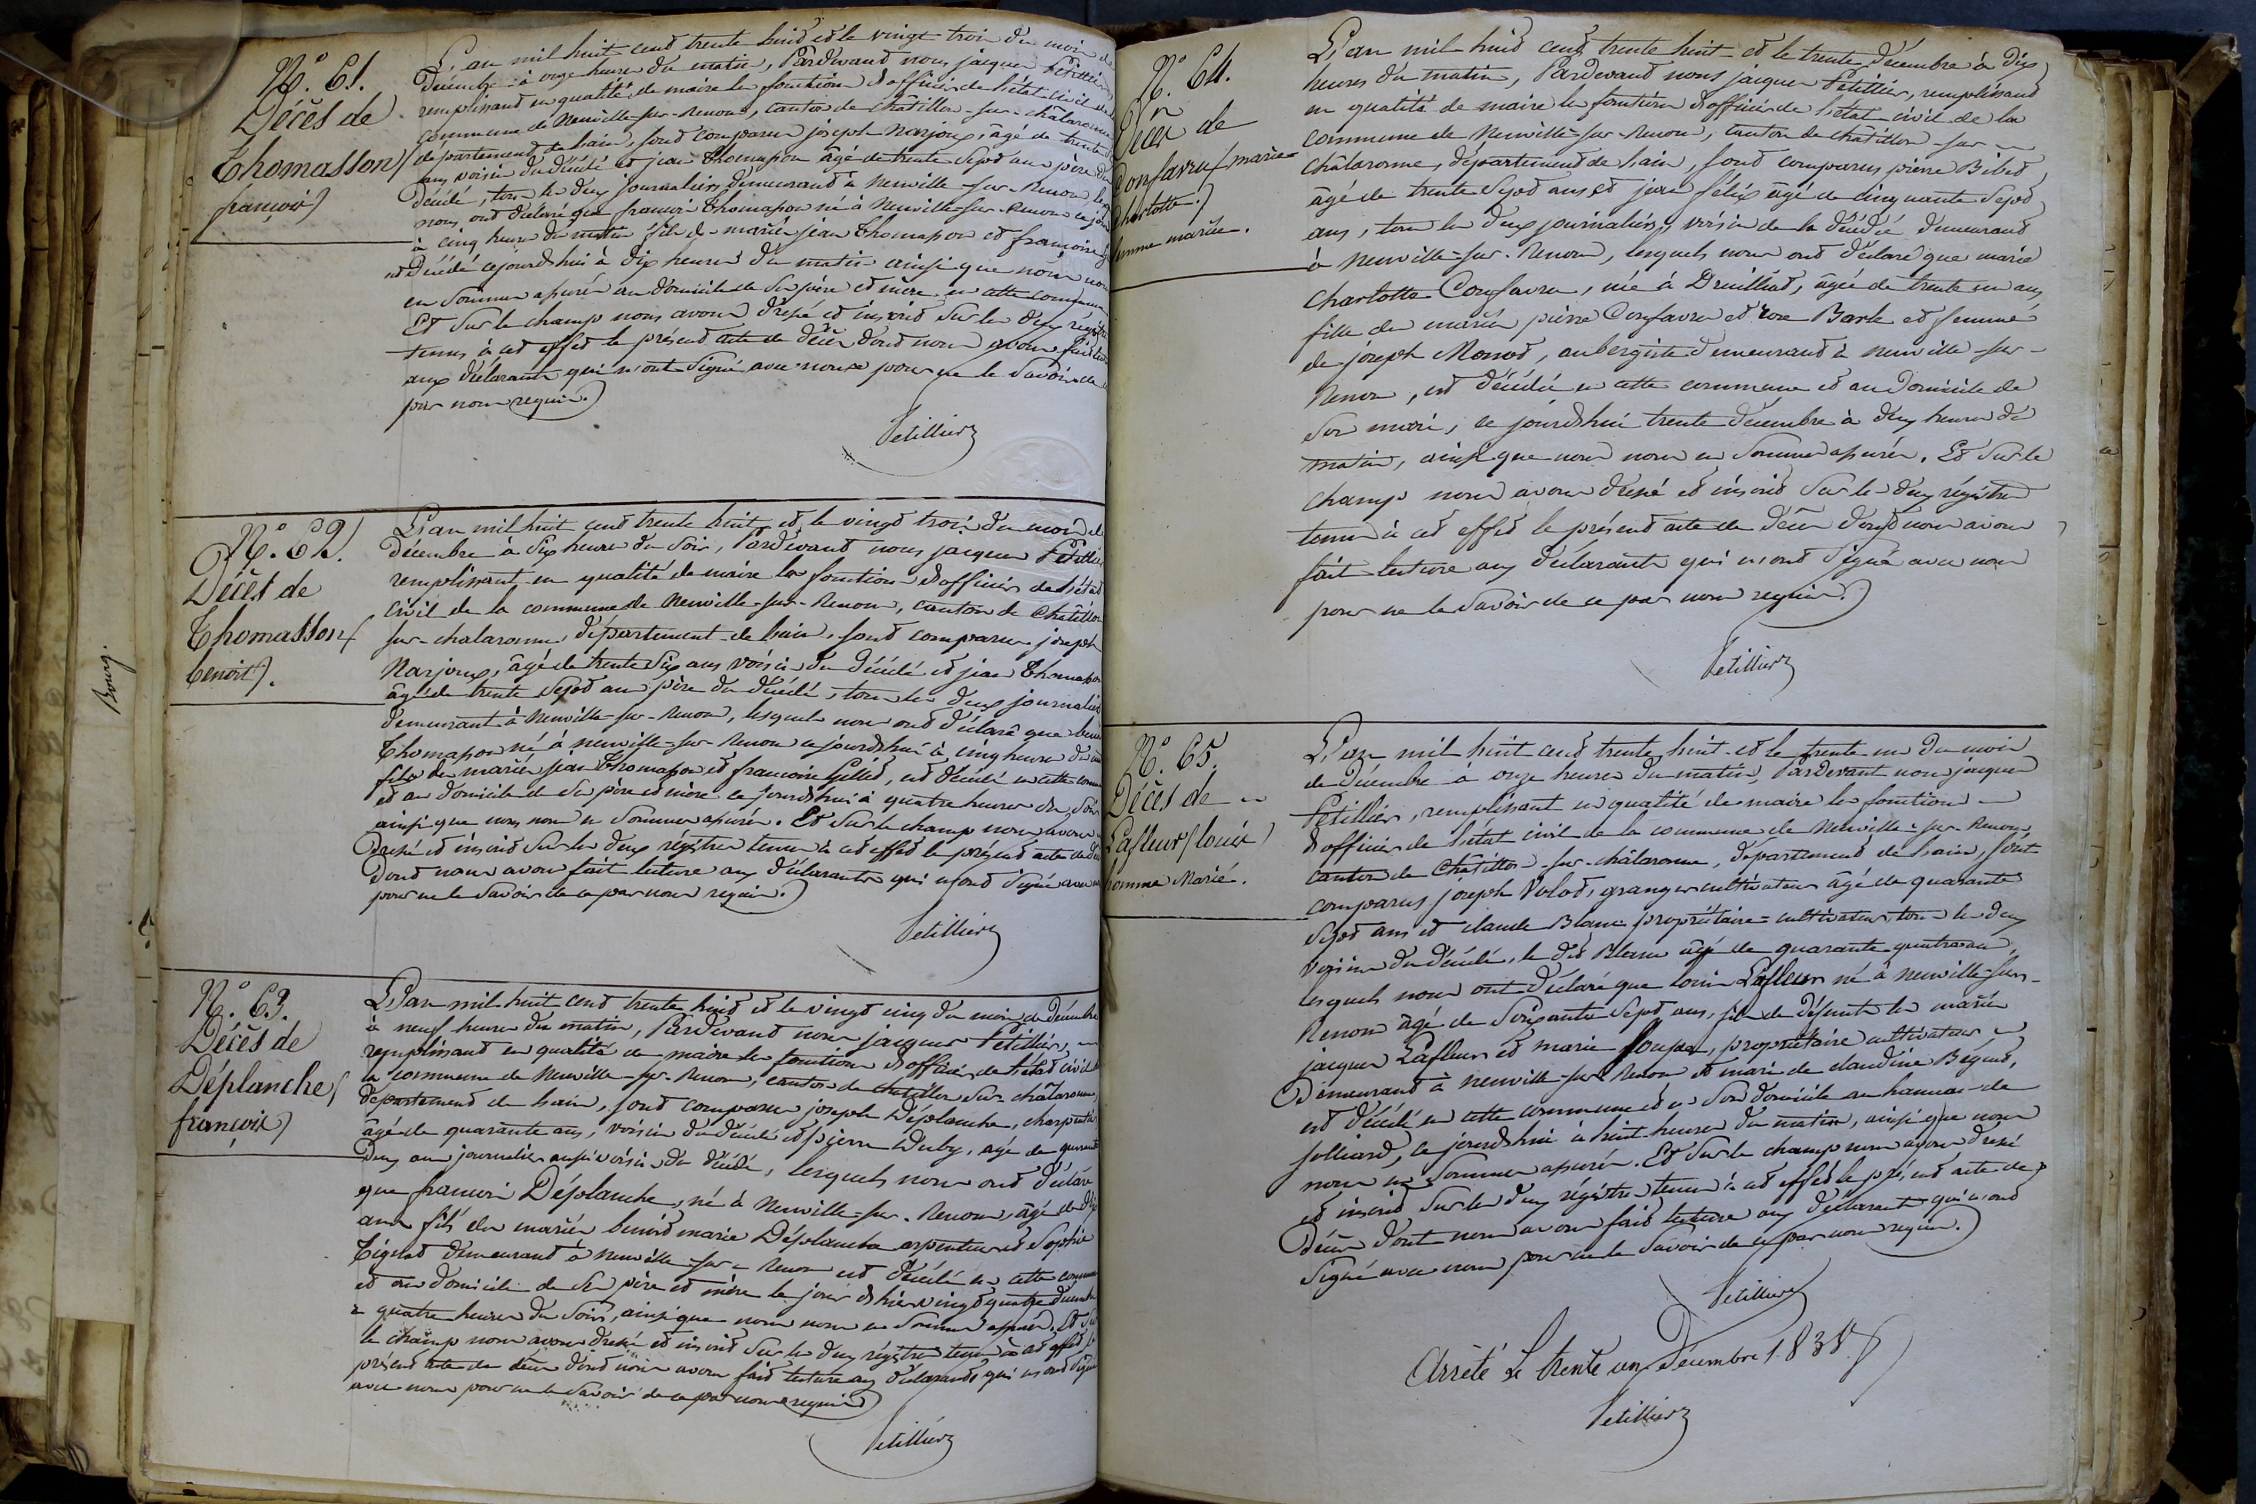 N.° 61.
Décès de
Thomasson (
françois)
L'an mil huit cent trente huit et le vingt trois du mois de
Décembre à onze heures du matin, Pardevant nous jacques Petillier
remplissant en qualité de maire les fonctions d'officier de l'état civil de la
commune de Neuville-sur-Renom, canton de chatillon-sur-chalaronne
département de l'ain, sont comparus joseph Narjoux, âgé de trente
ans voisin du décédé et jean Thomasson âgé de trente sept ans père du
décédé, tous les deux journaliers demeurant à Neuville-sur-Renom, les
nous ont déclaré que françois Thomasson né à Neuville-sur-Renom ce jour
à cinq heures du matin fils des mariés jean Thomasson et françoise
est décédé cejourd'hui à dix heures du matin ainsi que nous nous
en sommes assurés au domicile de ses père et mère en cette commune
Et sur le champ nous avons dressé et inscrit sur les deux régistres
tenus à cet effet le présent acte de décès dont nous avons fait lecture
aux déclarants qui n'ont signé avec nous pour ne le savoir de ce
par nous requis.)
Petillier
N.° 62.
Décès de
Thomasson (
benoit).
L'an mil huit cent trente huit et le vingt trois du mois de
décembre à six heures du soir, Pardevant nous jacques Petillier
remplissant en qualité de maire les fonctions d'officier de l'état
civil de la commune de Neuville-sur-Renom, canton de Châtillon
sur-chalaronne, département de l'ain, sont comparus joseph
Narjoux, âgé de trente six ans voisin du décédé et jean Thomasson
âgé de trente sept ans père du décédé, tous les deux journaliers
demeurant à Neuville-sur-Renom, lesquels nous ont déclaré que benoit
Thomasson né à neuville-sur-Renom cejourd'hui à cinq heures du matin
fils des mariés jean Thomasson et françoise Gillet, est décédé en cette commune
et au domicile de ses père et mère ce jourd'hui à quatre heures du soir
ainsi que nous nous en sommes assurés. Et sur le champ nous avons
dressé et inscrit sur les deux régistres tenus à cet effet le présent acte de décès
dont nous avons fait lecture aux déclarants qui n'ont signé avec nous
pour ne le savoir de ce par nous requis.)
Petillier
N.° 63.
Décès de
Déplanche (
françois)
L'an mil huit cent trente huit et le vingt cinq du mois de décembre
à neuf heures du matin, Pardevant nous jacques Petillier,
remplissant en qualité de maire les fonctions d'officier de l'état civil de
la commune de Neuville-sur-Renom, canton de chatillon sur-châlaronne,
département de l'ain, sont comparus joseph Déplanche, charpentier
âgé de quarante ans, voisin du décédé et pierre Duby, âgé de quarante
deux ans journalier aussi voisin du décédé, lesquels nous ont déclaré
que françois Déplanche, né à Neuville-sur-Renom, âgé de dix
ans fils des mariés benoit marie Déplanche arpenteur et Sophie
Tignat demeurant à neuville-sur-Renom est décédé en cette commune
et au domicile de ses père et mère le jour d'hier vingt quatre décembre
à quatre heures du soir, ainsi que nous nous en sommes assurés. Et sur
le champ nous avons dressé et inscrit sur les deux régistres tenus à cet effet le
présent acte de décès dont nous avons fait lecture aux déclarants qui n'ont signé
avec nous pour ne le savoir de ce par nous requis)
Petillier
N.° 64.
Décès de
Confavreux (marie
charlotte.)
femme mariée.
L'an mil huit cent trente huit et le trente décembre à dix
heures du matin, Pardevant nous jacques Petillier, remplissant
en qualité de maire les fonctions d'officier de l'état civil de la
commune de Neuville-sur-Renom, canton de châtillon-sur-
châlaronne, département de l'ain, sont comparus pierre Bibet
âgé de trente sept ans et jean félix âgé de cinquante sept
ans, tous les deux journaliers, voisins de la décédée demeurant
à Neuville-sur-Renom, lesquels nous ont déclaré que marie
Charlotte Confavreu, née à Druilliat, âgée de trente un ans,
fille des mariés pierre Confavreu et rose Bark et femme
de joseph Monnet, aubergiste demeurant à neuville-sur-
Renom, est décédée en cette commune et au domicile de
son mari, ce jourd'hui trente décembre à deux heures du
matin, ainsi que nous nous en sommes assurés. Et sur le
champ nous avons dressé et inscrit sur les deux régistres
tenus à cet effet le présent acte de décès dont nous avons
fait lecture aux déclarants qui n'ont signé avec nous
pour ne le savoir de ce par nous requis.)
Petillier
N.° 65.
Décès de
Lafleur (louis)
homme Marié.
L'an mil huit cent trente huit et le trente un du mois
de décembre à onze heures du matin, Pardevant nous jacques
Petillier, remplissant en qualité de maire les fonctions
d'officier de l'état civil de la commune de Neuville-sur-Renom,
canton de Châtillon-sur-châlaronne, département de l'ain, sont
comparus joseph Volat, granger cultivateur âgé de quarante
sept ans et claude Blanc propriétaire-cultivateur tous les deux
voisins du décédé, le dit Blanc âgé de quarante quatre ans,
lesquels nous ont déclaré que louis Lafleur né à neuville-sur-
Renom âgé de soixante sept ans, fils de défunts les mariés
jacques Lafleur et marie, propriétaire cultivateur
demeurant à neuville-sur-Renom et mari de claudine Béguet,
est décédé en cette commune et en son domicile au hameau de
jolliard, ce jourd'hui à huit heures du matin, ainsi que nous
nous en sommes assurés. Et sur le champ nous avons dressé
et inscrit sur les deux régistres tenus à cet effet le présent acte de
décès dont nous avons fait lecture aux déclarants qui n'ont
signé avec nous pour ne le savoir de ce par nous requis.)
Petillier
Arrêté le trente un Décembre 1838.
Petillier
Bourg.